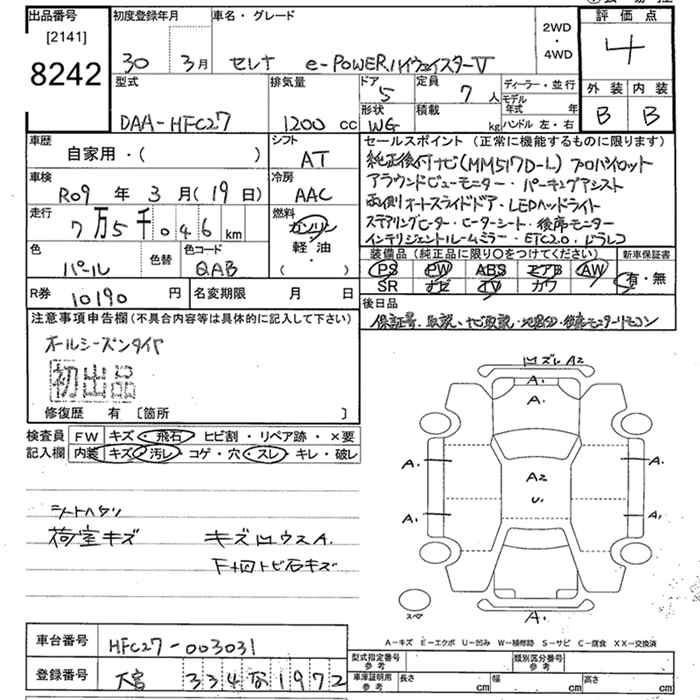 出品番号
[2141]
8242
初度登録年月
30 3月
車名・グレード
セレナ e-POWERハイウェイスターV
2WD
・
4WD
評価点
4
外装 内装
B B
型式
DAA-HFC27
排気量
1200 cc
ドア
5
定員
7 人
形状
WG
積載
kg
ディーラー・並行
モデル年式 年
ハンドル 左・右
車歴
自家用・( )
シフト
AT
車検
R09 年 3 月 (19 日)
冷房
AAC
走行
7万5千046 km
燃料
ガソリン
軽・油
( )
色
パール
色替
色コード
QAB
R券
10190 円
名変期限 月 日
セールスポイント (正常に機能するものに限ります)
純正後付ナビ(MM517D-L) プロパイロット
アラウンドビューモニター・パーキングアシスト
両側オートスライドドア・LEDヘッドライト
ステアリングヒーター・ヒーターシート・後席モニター
インテリジェントルームミラー・ETC2.0・ドラレコ
装備品 (純正品に限り○をつけてください)
PS PW ABS エアB AW
SR ナビ TV カワ
新車保証書
有・無
後日品
保証書、取説、ナビ取説、後席モニターリモコン
注意事項申告欄 (不具合内容等は具体的に記入して下さい)
オールシーズンタイヤ
初出品
修復歴 有 〔箇所 〕
検査員
記入欄
FW キズ・飛石・ヒビ割・リペア跡・×要
内装 キズ・汚レ・コゲ・穴・スレ・キレ・破レ
シートヘタリ
荷室キズ
キズ凹ウスA.
F+回トビ石キズ
凹ズレA2
A.
A.
A2
U.
A.
A.
A.
A.
A.
スペア
A-キズ E-エクボ U-凹み W-補修跡 S-サビ C-腐食 XX-交換済
車台番号
HFC27-003031
登録番号
大宮 334 な 1972
型式指定番号
参考
類別区分番号
参考
車庫証明用
参考
長さ cm
幅 cm
高さ cm